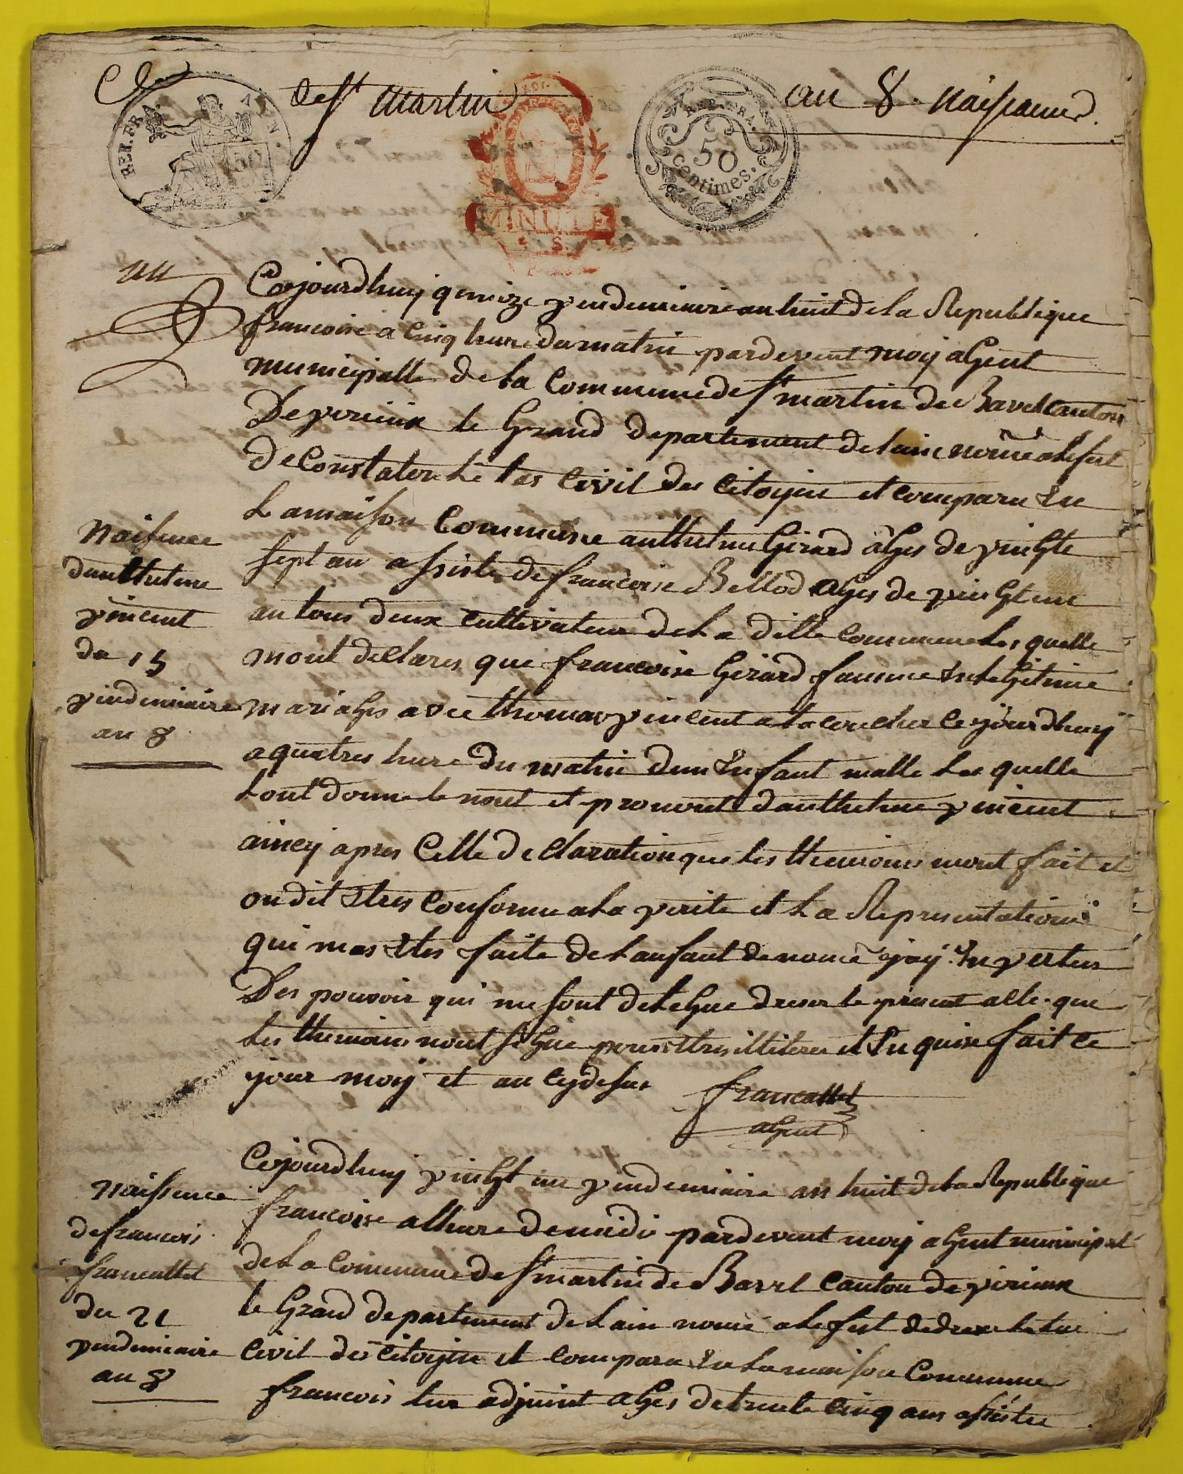 de St martin
an 8. naissance
REP. FRA.
50
centimes.
REP. FRA.
MINUTE
Cejourdhuy quinze vindemiaire an huit de la Republique
francoise a cinq hure du matin pardevent moy aGent
municipalle de la Commune de St martin de Bavel canton
De virieux le Grand departement de lain nomé a lefest
de Constater le tas Civil des citoyin et comparu En
La maison Commune anthelme Girard aGes de vinGte
sept an assiste de francoise Bellod aGes de vinGt un
an tous deux cultivateur de la ditte commune Les quelle
mont declares que francoise Girard famme En leGitime
mariaGes avec thomas vincent a lacoucher cejourdhuy
a quatres hure du matin dun Enfant malle Les quelle
Lont donne le nom et prenont danthelme vincent
aincy apres Celle declaration que les themoins mont fait et
on dit Etres Conforme a La verite et La Representation
qui mas Etes faite de Lanfant denomé jay En vertus
Des pouvoir qui me sont deleGue dreser le present acte que
les themoins nont siGne pour Etres illiteres et En quise fait ce
jour moy et an cydesus
francallet
aGent
naissence
danthelme
vincent
du 15
vindemiaire
an 8
Cejourdhuy vinGt un vindemiaire an huit de la Republique
francoise a lhure de midi pardevent moy aGent municipal
de La Commune de St martin de Bavel canton de virieux
le Grand departement de Lain nomé a lefest
Civil des citoyin et comparu En La maison Commune
francois adjoint aGes de trente cinq ans assistee
naissence
de francois
francallet
du 21
vindemiaire
an 8